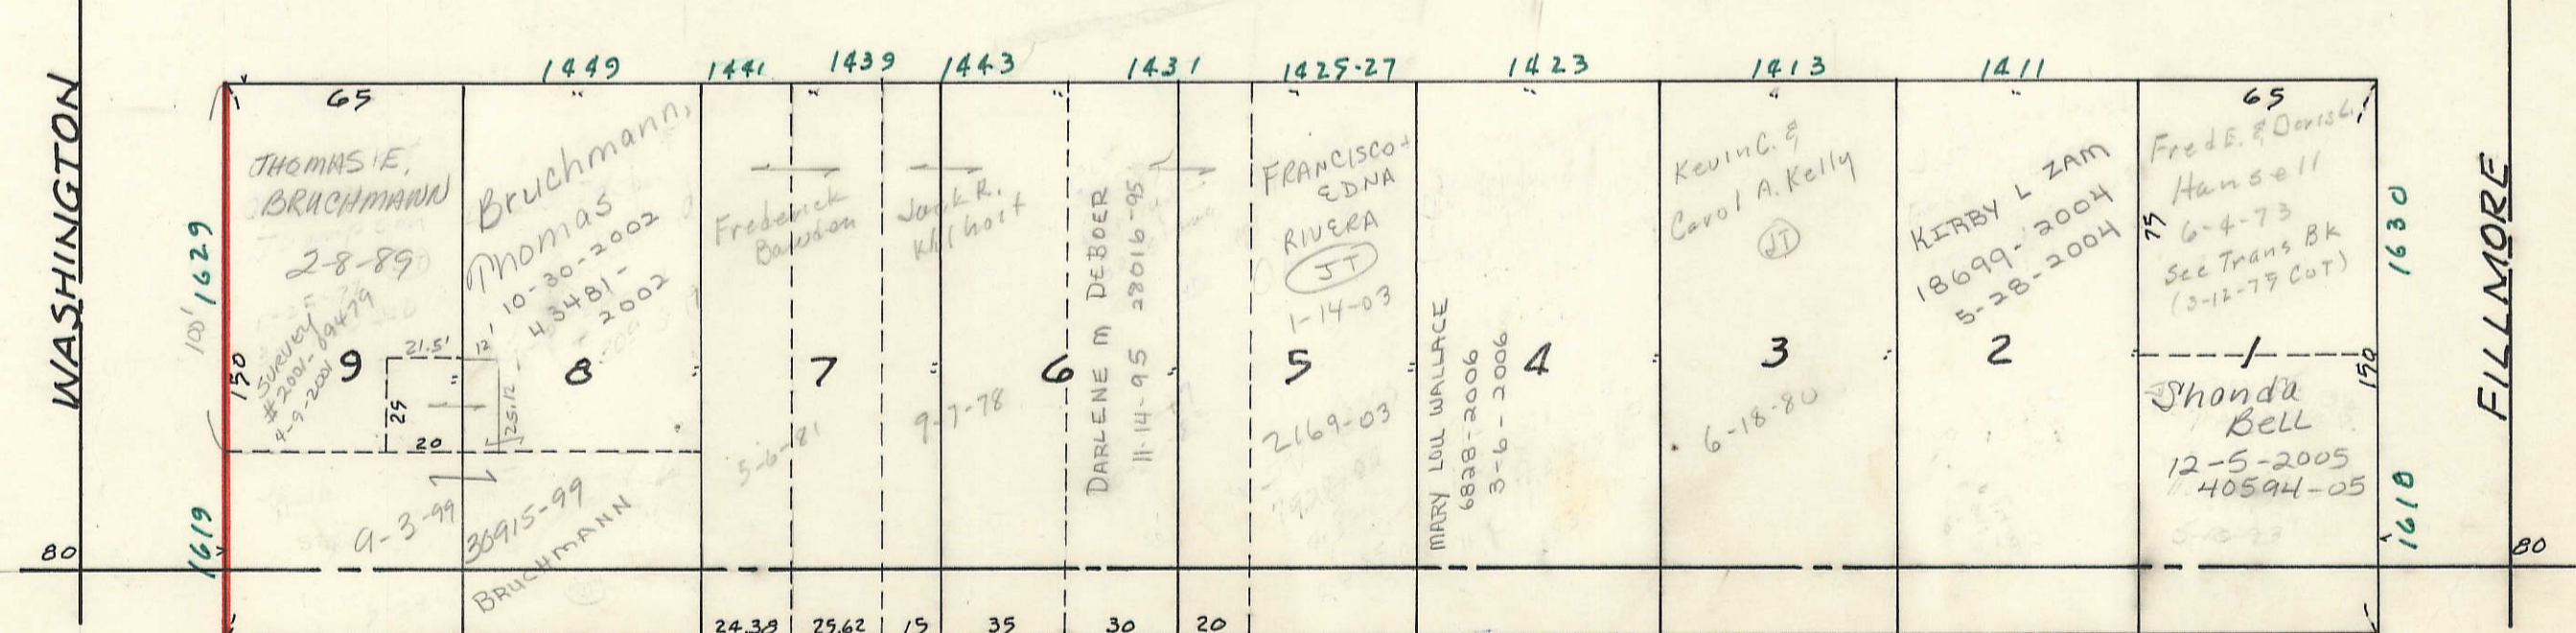 1449
1441
1439
1443
1431
1425-27
1423
1413
1411
WASHINGTON
1629
100'
1619
80
65
THOMAS E.
BRUCHMANN
2-8-89
SURVEY
#2001-09479
4-9-2001
150
9
21.5'
25
20
9-3-99
Bruchmann,
Thomas
10-30-2002
43481-
2002
12'
8
25.12
30915-99
BRUCHMANN
Frederick
Bawden
7
5-6-81
24.38
25.62
15
Jack R.
9-7-78
35
6
DARLENE M DEBOER
11-14-95 28016-95
30
20
FRANCISCO +
EDNA
RIVERA
JT
1-14-03
5
2169-03
MARY LOU WALLACE
6828-2006
3-6-2006
4
Kevin C. &
Carol A. Kelly
JT
3
6-18-80
KIRBY L ZAM
18699-2004
5-28-2004
2
65
Fred E. & Doris L.
Hansell
6-4-73
See Trans Bk
(3-12-75 CUT)
75
1
150
Shonda
BELL
12-5-2005
40594-05
1630
1618
FILLMORE
80